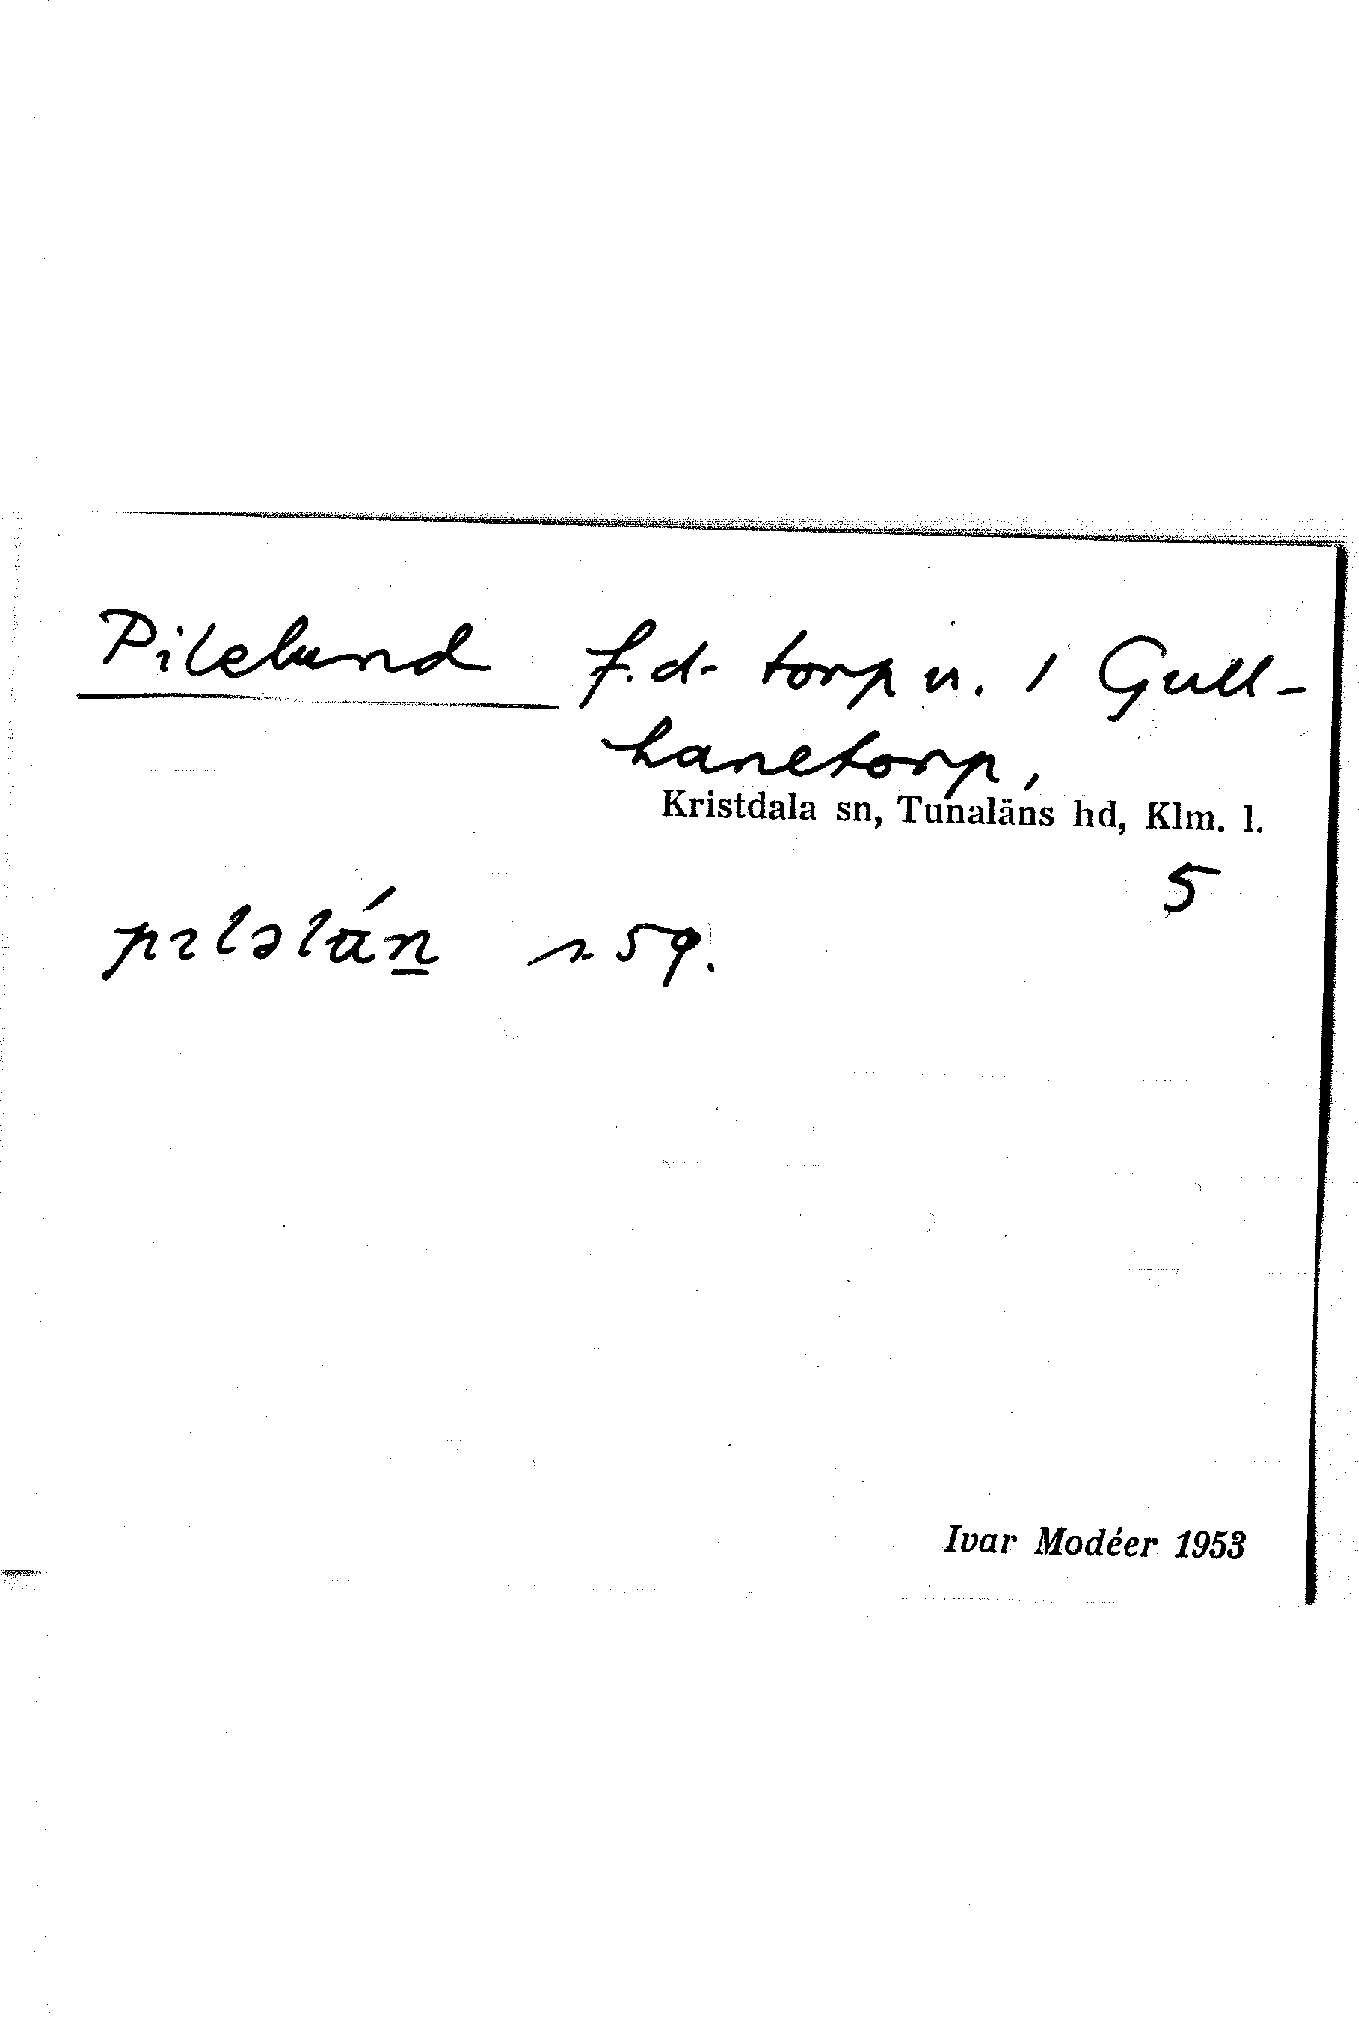 Pilelund f.d. torp u. 1 Gull-
hanetorp,
Kristdala sn, Tunaläns hd, Klm. l.
5
59.
Ivar Modéer 1953